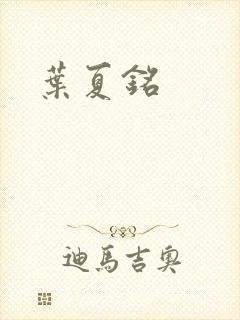 葉夏銘
迪馬吉奧